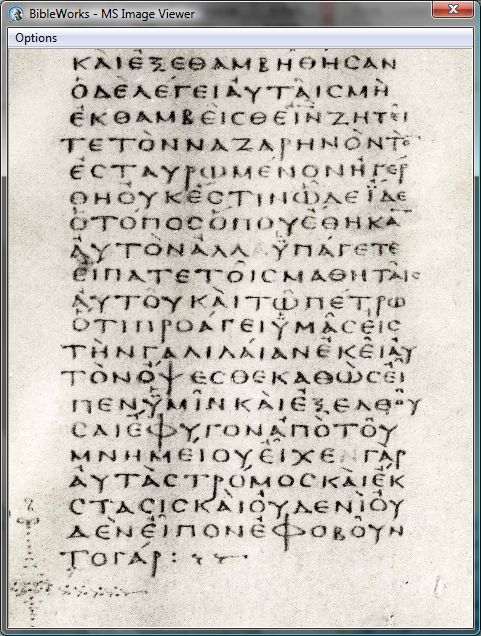 BibleWorks - MS Image Viewer
Options
ΚΑΙΕΞΕΘΑΜΒΗΘΗϹΑΝ
ΟΔΕΛΕΓΕΙΑΥΤΑΙϹΜΗ
ΕΚΘΑΜΒΕΙϹΘΕΙΝΖΗΤΕΙ
ΤΕΤΟΝΝΑΖΑΡΗΝΟΝΤΟ
ΕϹΤΑΥΡΩΜΕΝΟΝΗΓΕΡ
ΘΗΟΥΚΕϹΤΙΝΩΔΕΪΔΕ
ΟΤΟΠΟϹΟΠΟΥΕΘΗΚΑ
ΑΥΤΟΝΑΛΛΑΫΠΑΓΕΤΕ
ΕΙΠΑΤΕΤΟΙϹΜΑΘΗΤΑΙϹ
ΑΥΤΟΥΚΑΙΤΩΠΕΤΡΩ
ΟΤΙΠΡΟΑΓΕΙΫΜΑϹΕΙϹ
ΤΗΝΓΑΛΙΛΑΙΑΝΕΚΕΙΑΥ
ΤΟΝΟΨΕϹΘΕΚΑΘΩϹΕΙ
ΠΕΝΫΜΙΝΚΑΙΕΞΕΛΘΟΥ
ϹΑΙΕΦΥΓΟΝΑΠΟΤΟΥ
ΜΝΗΜΕΙΟΥΕΙΧΕΝΓΑΡ
ΑΥΤΑϹΤΡΟΜΟϹΚΑΙΕΚ
ϹΤΑϹΙϹΚΑΙΟΥΔΕΝΙΟΥ
ΔΕΝΕΙΠΟΝΕΦΟΒΟΥΝ
ΤΟΓΑΡ: